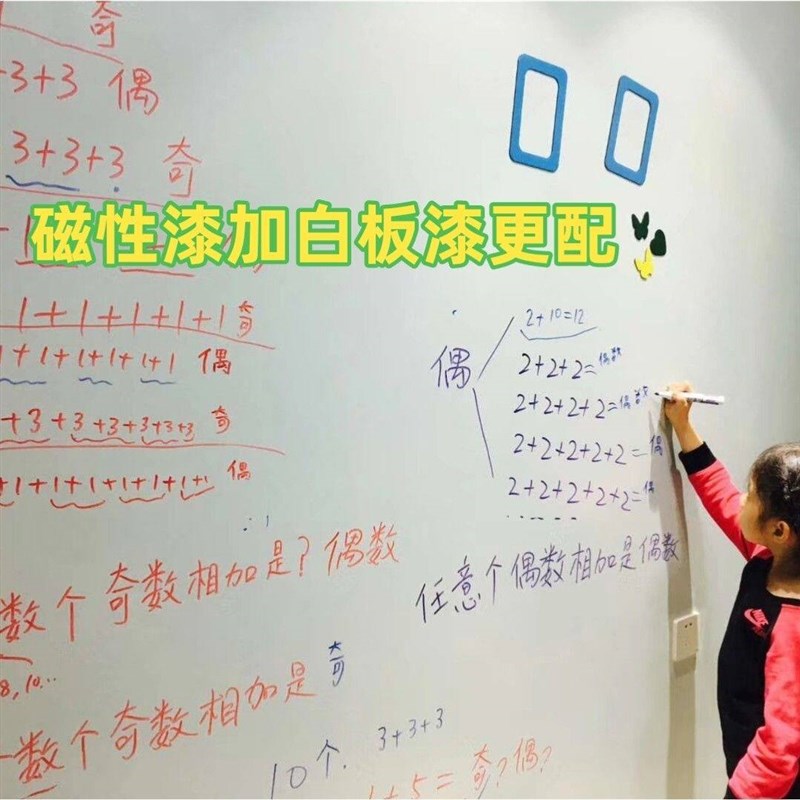 奇
3+3 偶
3+3+3 奇
磁性漆加白板漆更配
1+1+1+1+1 奇
1+1+1+1+1+1 偶
+3+3+3+3+3+3 奇
1+1+1+1+1+1+1+1 偶
数个奇数相加是?偶数
8,10...
数个奇数相加是奇
偶
2+10=12
2+2+2=偶数
2+2+2+2=偶数
2+2+2+2+2=偶
2+2+2+2+2=偶
.....
任意个偶数相加是偶数
10个.
3+3+3
1+5=奇?偶?